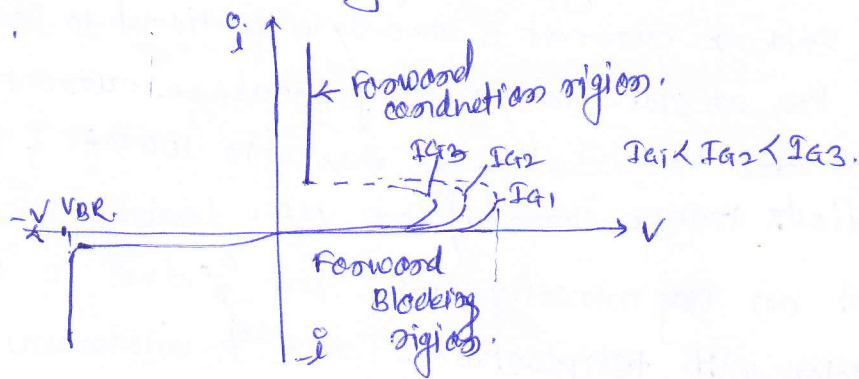 i
Forward
conduction rigion.
IG3 IG2 IG1
IG1 < IG2 < IG3.
-V VBR. V
Forward
Blocking
rigion.
-i